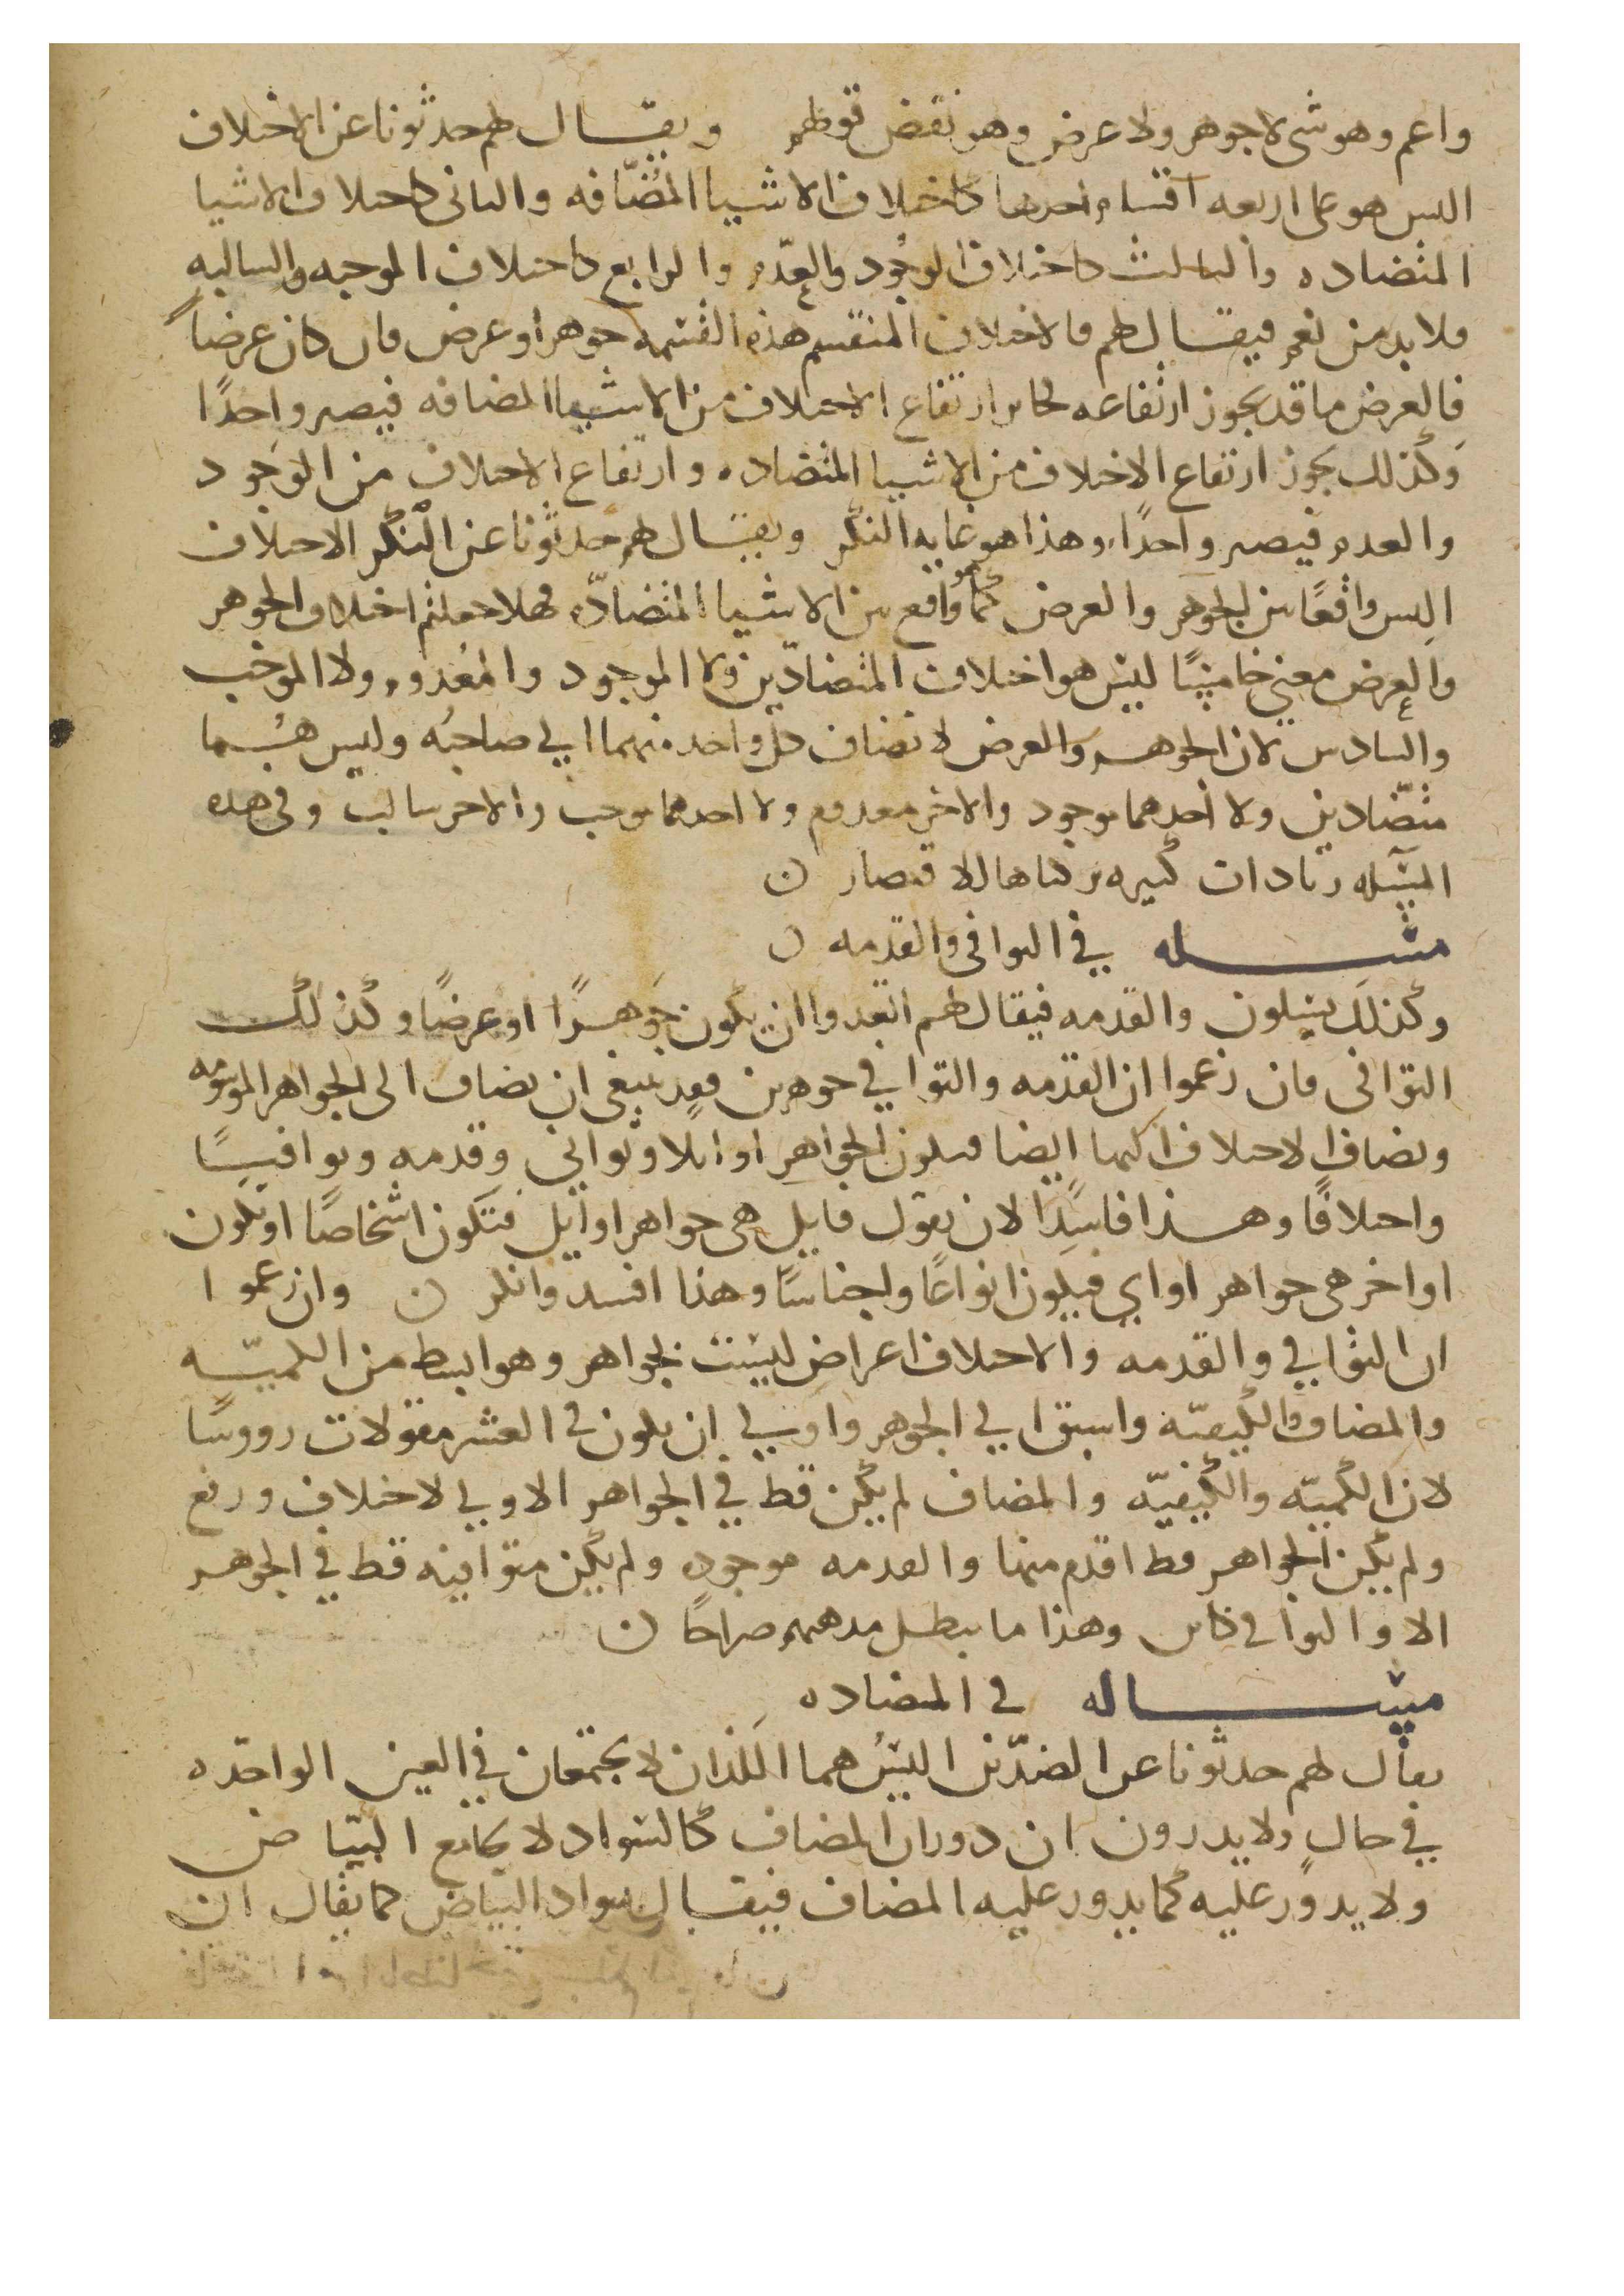 واعم وهو شى لا جوهر ولا عرض وهو نقض قولهم ويقال لهم حدثونا عن الاختلاف
اليس هو على اربعه اقسام احدها كاختلاف الاشيا المُضَافه والثانى كاختلاف الاشيا
المتضاده والثالث كاختلاف الوجُود والعدَم والرابع كاختلاف الموجبه والسالبه
فلا بد من نعم فيقال لهم فالاختلاف المنقسم هذه القسمه جوهر او عرض فان كان عرضاً
فالعرض ما قد يجوز ارتفاعه لجاز ارتفاع الاختلاف من الاشيا المضافه فيصير واحدًا
وكذلك يجوز ارتفاع الاختلاف من الاشيا المتضاده وارتفاع الاختلاف من الوجود
والعدم فيصير واحدًا وهذا هو غايه النكر ويقال لهم حدثونا عن النكر الاختلاف
اليس واقعًا بين الجوهر والعرض كما هو واقع بين الاشيا المتضادّه فهلا جعلتم اختلاف الجوهر
والعرض معنى خامسًا ليس هو اختلاف المتضادّين ولا الموجود والمعُدوم ولا الموجب
والسادس لان الجوهر والعرض لا تضاف كل واحد منهما الي صاحبُه وليس هُما
متضّادين ولا احدهما موجود والاخر معدوم ولا احدهما موجب والاخر سالب وفى هذه
المسٔله زيادات كثيره تركناها للاقتصار ن
مسٔله في التوافى والقدمه ن
وكذلك يسٔلون والقدمه فيقال لهم اتعدوا ان يكون جَوهرًا او عرضًا وكذلك
التوافى فان زعموا ان القدمه والتوافي جوهرين فقد ينبغى ان يضاف الى الجواهر الموسومه
ويضاف الاختلاف اليهما ايضا فيكون الجواهر اوايلا وثواني وقدمه وتوافيًا
واختلافًا وهذا فاسِدًا لان يقول قايل هى جواهر اوايل فتكون اشخاصًا او تكون
اواخر هى جواهر اواي فيكون انواعًا واجناسًا وهذا افسد وانكر ن وان زعموا
ان التوافي والقدمه والاختلاف اعراض ليست بجواهر وهو ابسط من الكميّه
والمضاف والكيفيّه واسبق الي الجوهر واولي ان يكون فى العشر مقولات رووسًا
لان الكميّه والكيفيّه والمضاف لم يكن قط في الجواهر الا ويي لاختلاف ورفع
ولم يكن الجواهر قط اقدم منها والقدمه موجود ولم يكن متوافيه قط في الجوهر
الا والتوافي كاين وهذا ما يبطل مذهبهم صراحًا ن
مسٔاله فى المضاده
يقال لهم حدثونا عن الضدّين اليسُ هما اللذان لا يجتمعان في العين الواحده
في حالٍ ولا يدرون ان دوران المضاف كالسواد لا يجامع البيّاض
ولا يدوُر عليه كما يدور عليه المضاف فيقال سواد البياض كما يقال ان